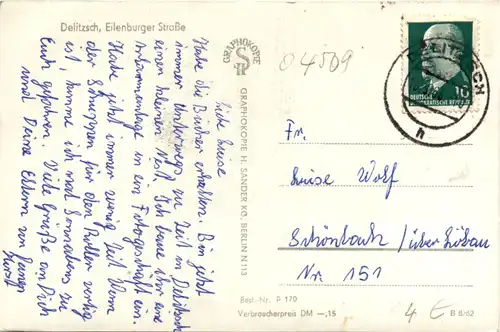 Delitzsch, Eilenburger Straße
Liebe Luise
Habe die Bücher erhalten. Bin jetzt
immer unterwegs zur Zeit in Delitzsch
einem kleinen Nest. Ich baue hier eine
in ein Fotogeschäft ein.
Habe jetzt immer wenig Zeit. Wenn
der Schuppen für den Roller fertig
ist, komme ich mal Sonnabends zu
Euch gefahren. Viele Grüße an Dich
und Deine Eltern von Deinem
Horst
GRAPHOKOPIE
GRAPHOKOPIE H. SANDER KG, BERLIN N 113
04509
DELITZSCH
h
10
DEUTSCHE
DEMOKRATISCHE REPUBLIK
Fr.
Luise Wolf
Schönbach / über Löbau
Nr. 151
Best.-Nr. P 170
Verbraucherpreis DM —,15
4 €
B 8/62